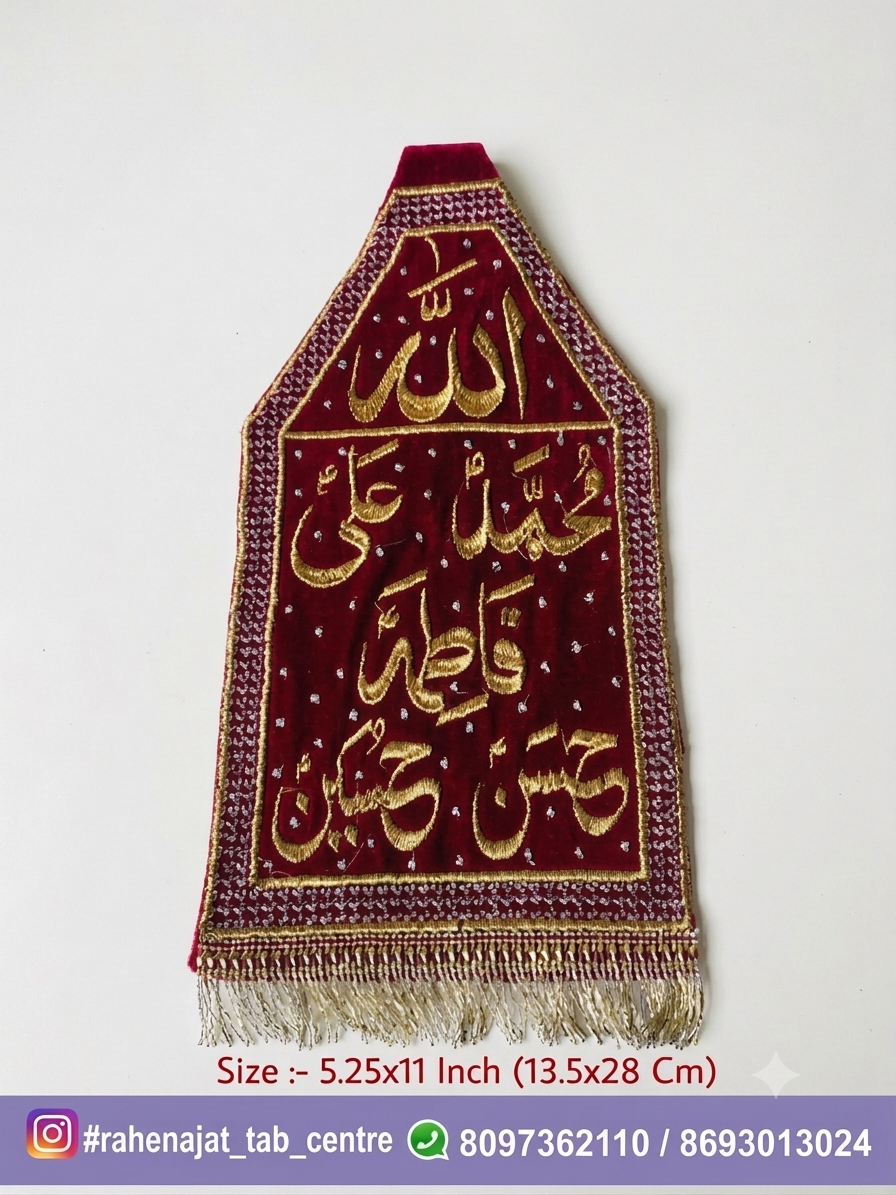 الله
محمد علی
فاطمة
حسن حسین
Size :- 5.25x11 Inch (13.5x28 Cm)
#rahenajat_tab_centre 8097362110 / 8693013024